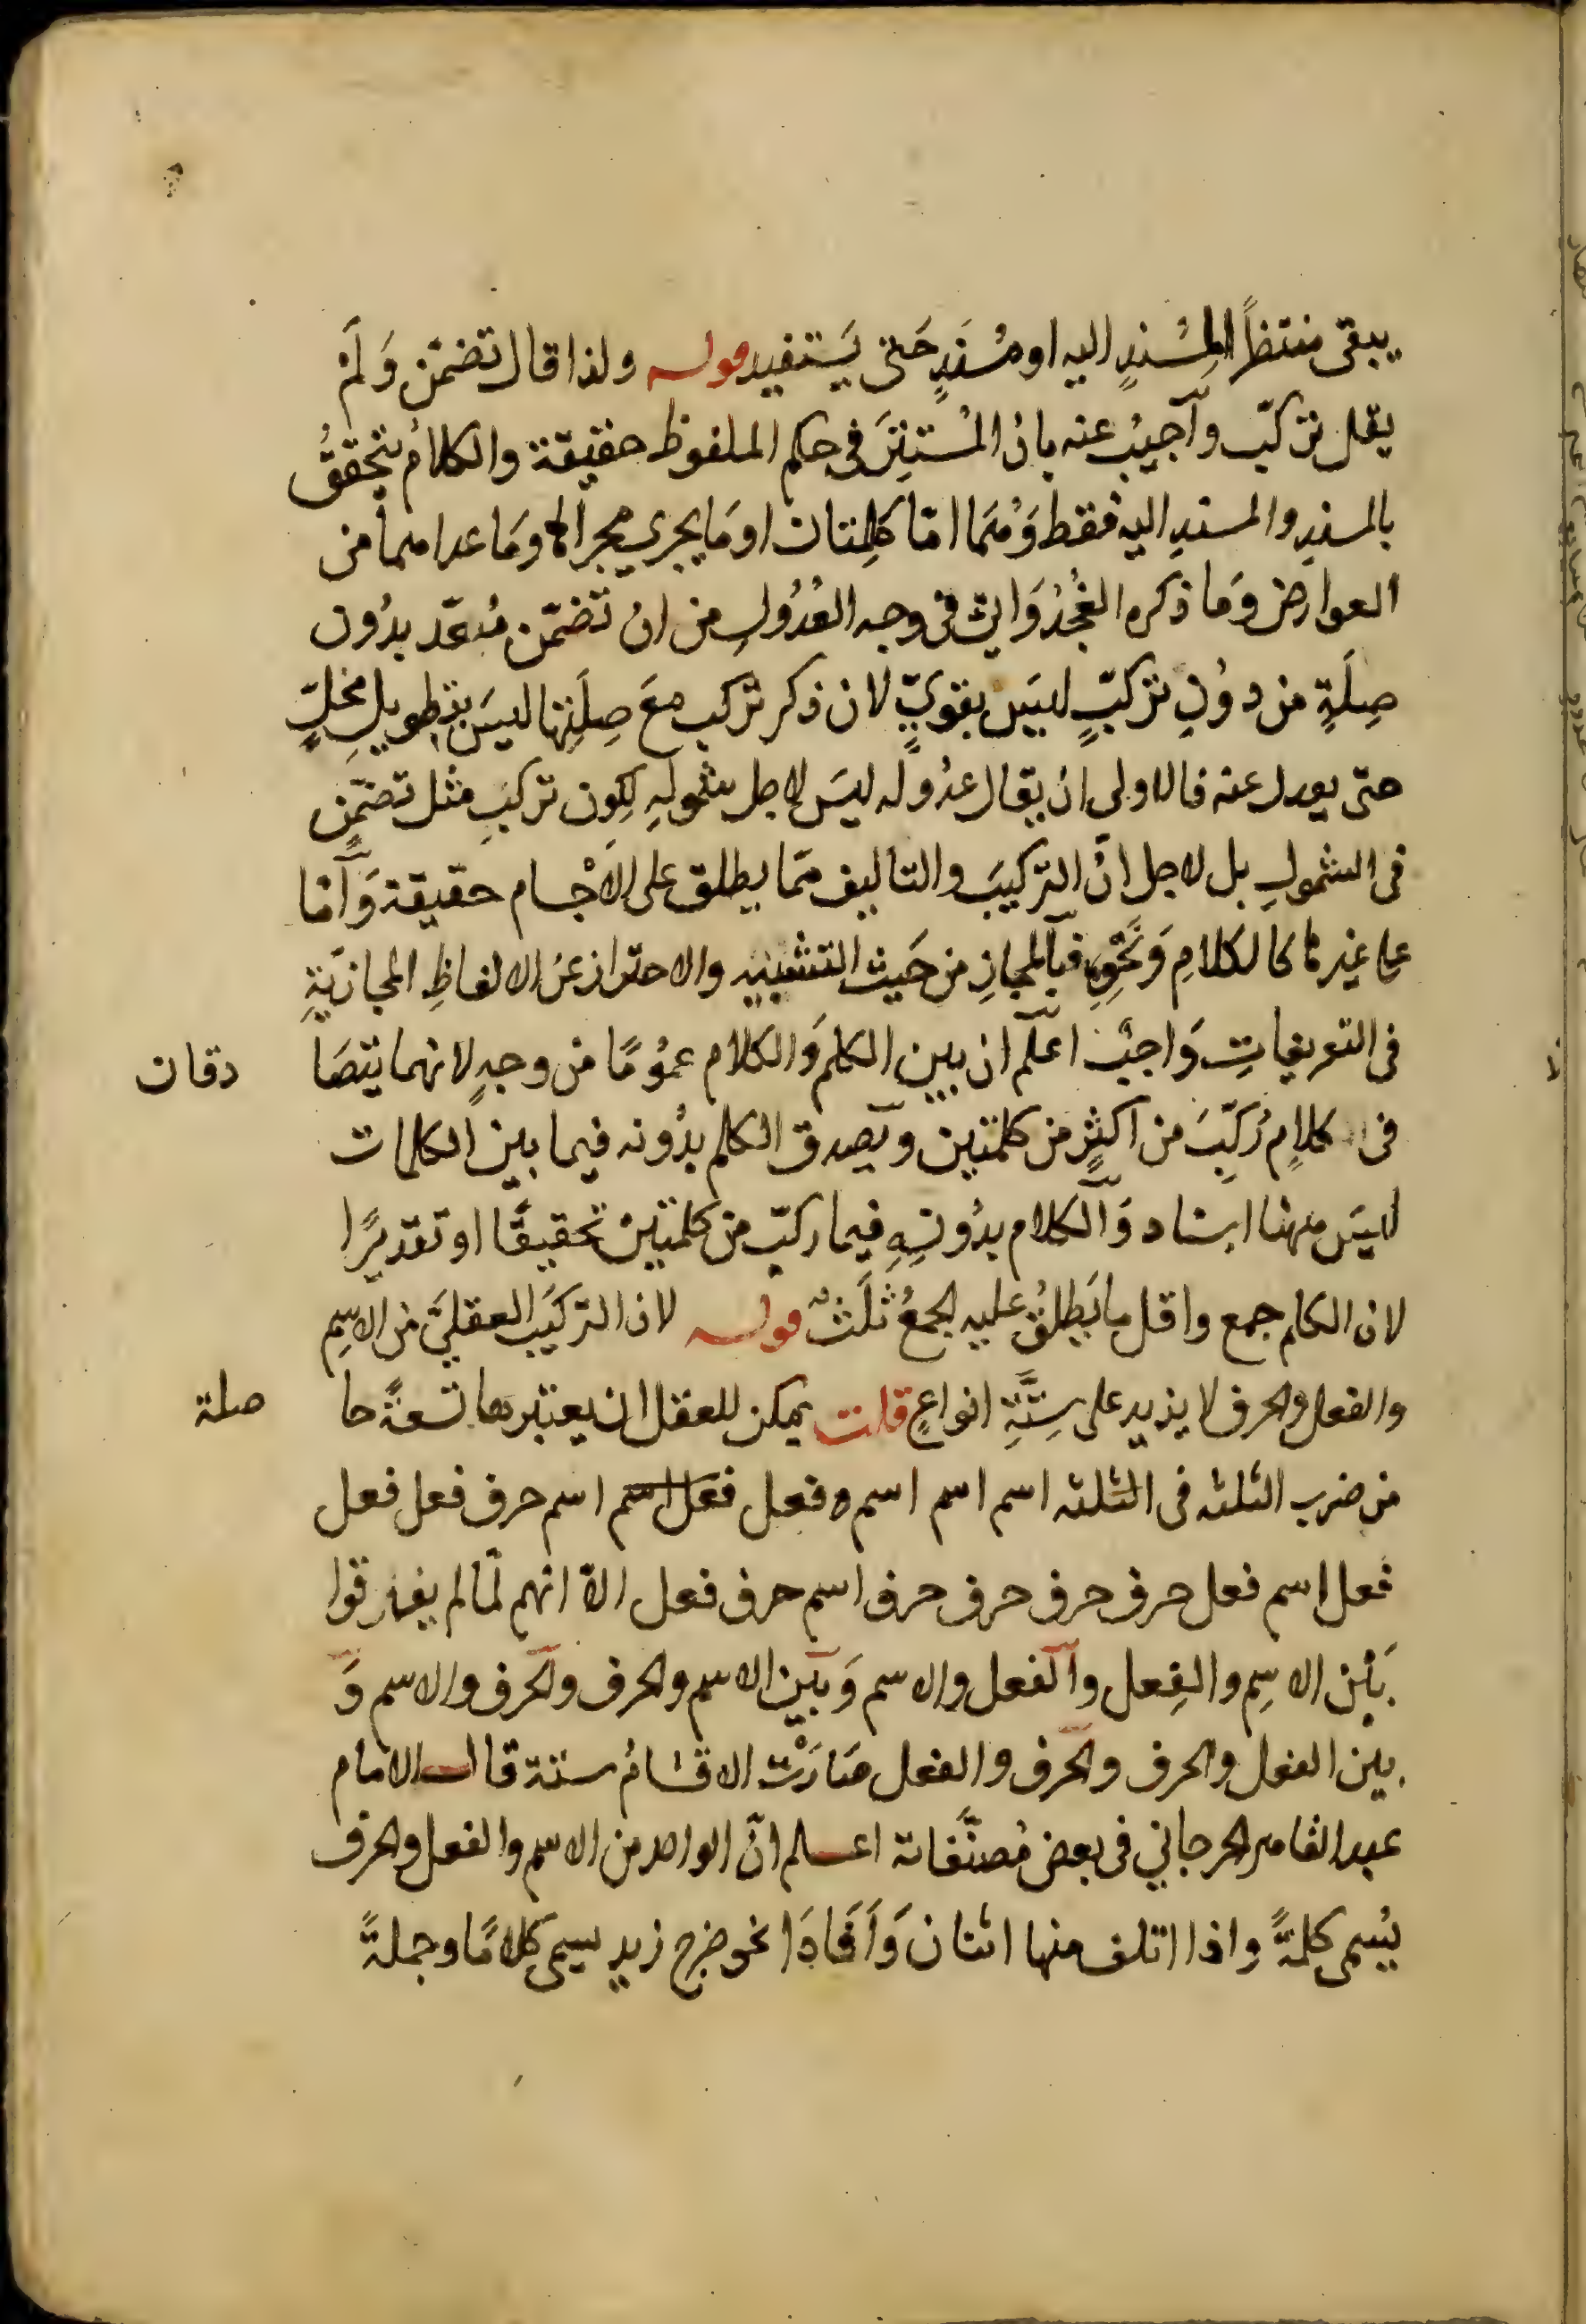 يبقى منتظراً المسندٍ اليه او مُسنَدٍ حَتّى يَستفيد قوله ولذا قال تضمّن وَلَمْ
يقل تركّب وآجيبُ عنه بانّ المُستتِرَ فى حكم الملفوظ حقيقة والكلامُ يتحققُ
بالمسندِ والمسندِ اليه فقط وَهُمَا امّا كَلِمتان او مَا يجري مجراها وَمَا عداهما من
العوارض وَما ذكره الغُجدُوَانىّ فى وجه العُدُولِ من انّ تَضمّن مُتعَدّ بدُون
صِلَةٍ من دُونِ تركّبٍ ليسَ بقويّ لان ذكر تركّب معَ صِلَتِها ليسَ بتطويلٍ مخلٍّ
حتّى يعدل عنه فالاولى انْ يقال عدُوله ليسَ لاجل شمولِهِ لكِون تركّبِ مثل تضمّنٍ
فى الشمولِ بل لاجل انّ التركيبَ والتاليف ممّا يطلق على الاَجْسام حقيقة وَآمّا
على غيرها كالكلامِ وَنَحْوِهِ فبالمجازِ من حَيث التشبيه والاحتراز عن الالفاظِ المجازيّةِ
فى التعريفاتِ وَاجبٌ اعلم ان بين الكلم وَالكلام عمُومًا من وجهٍ لانهما يتصَا دقان
فى كلامٍ رُكّبَ من اكثرٍ من كلمتين وَيَصدق الكلم بدُونه فيما بين الكلمات
ليسَ ههنا اسناد وَالكلام بدُونِهِ فيما ركّب من كلمتين تحقيقًا او تقديرًا
لان الكلم جمع واقل ما يَطلقُ عليه الجمعُ ثلَثٌ قوله لان التركيَب العقليّ من الاسمِ
والفعل والحرف لا يزيد على سِتَّةِ انواعٍ قلت يمكن للعقل ان يعتبرها تسعةً حا صلة
من ضرب الثلثه فى الثلثه اسم اسم اسم وفعل فعل اسم اسم حرف فعل فعل
فعل اسم فعل حرف حرف حرف حرف اسم حرف فعل الاّ انهم لمّا لم يفرقوا
بَيْن الاسِم والفِعل والفعل والاسم وَبَين الاسم والحرف والحرف والاسم وَ
بين الفعل والحرف والحرف والفعل صَارَتْ الاقسَامُ ستة قال الامام
عبد القاهر الجرجاني فى بعض مُصنَّفاته اعلم انّ الواحد من الاسم والفعل والحرف
يُسمى كلمةً واذا ائتلف منها اثنان وَاَفَادَا نحو خرج زيد يسمى كلامًا وجملةً